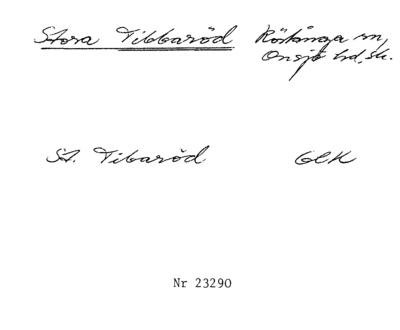 Stora Tibbaröd Röstånga sn,
Onsjö hd, Sk.
St. Tibaröd GEK
Nr 23290